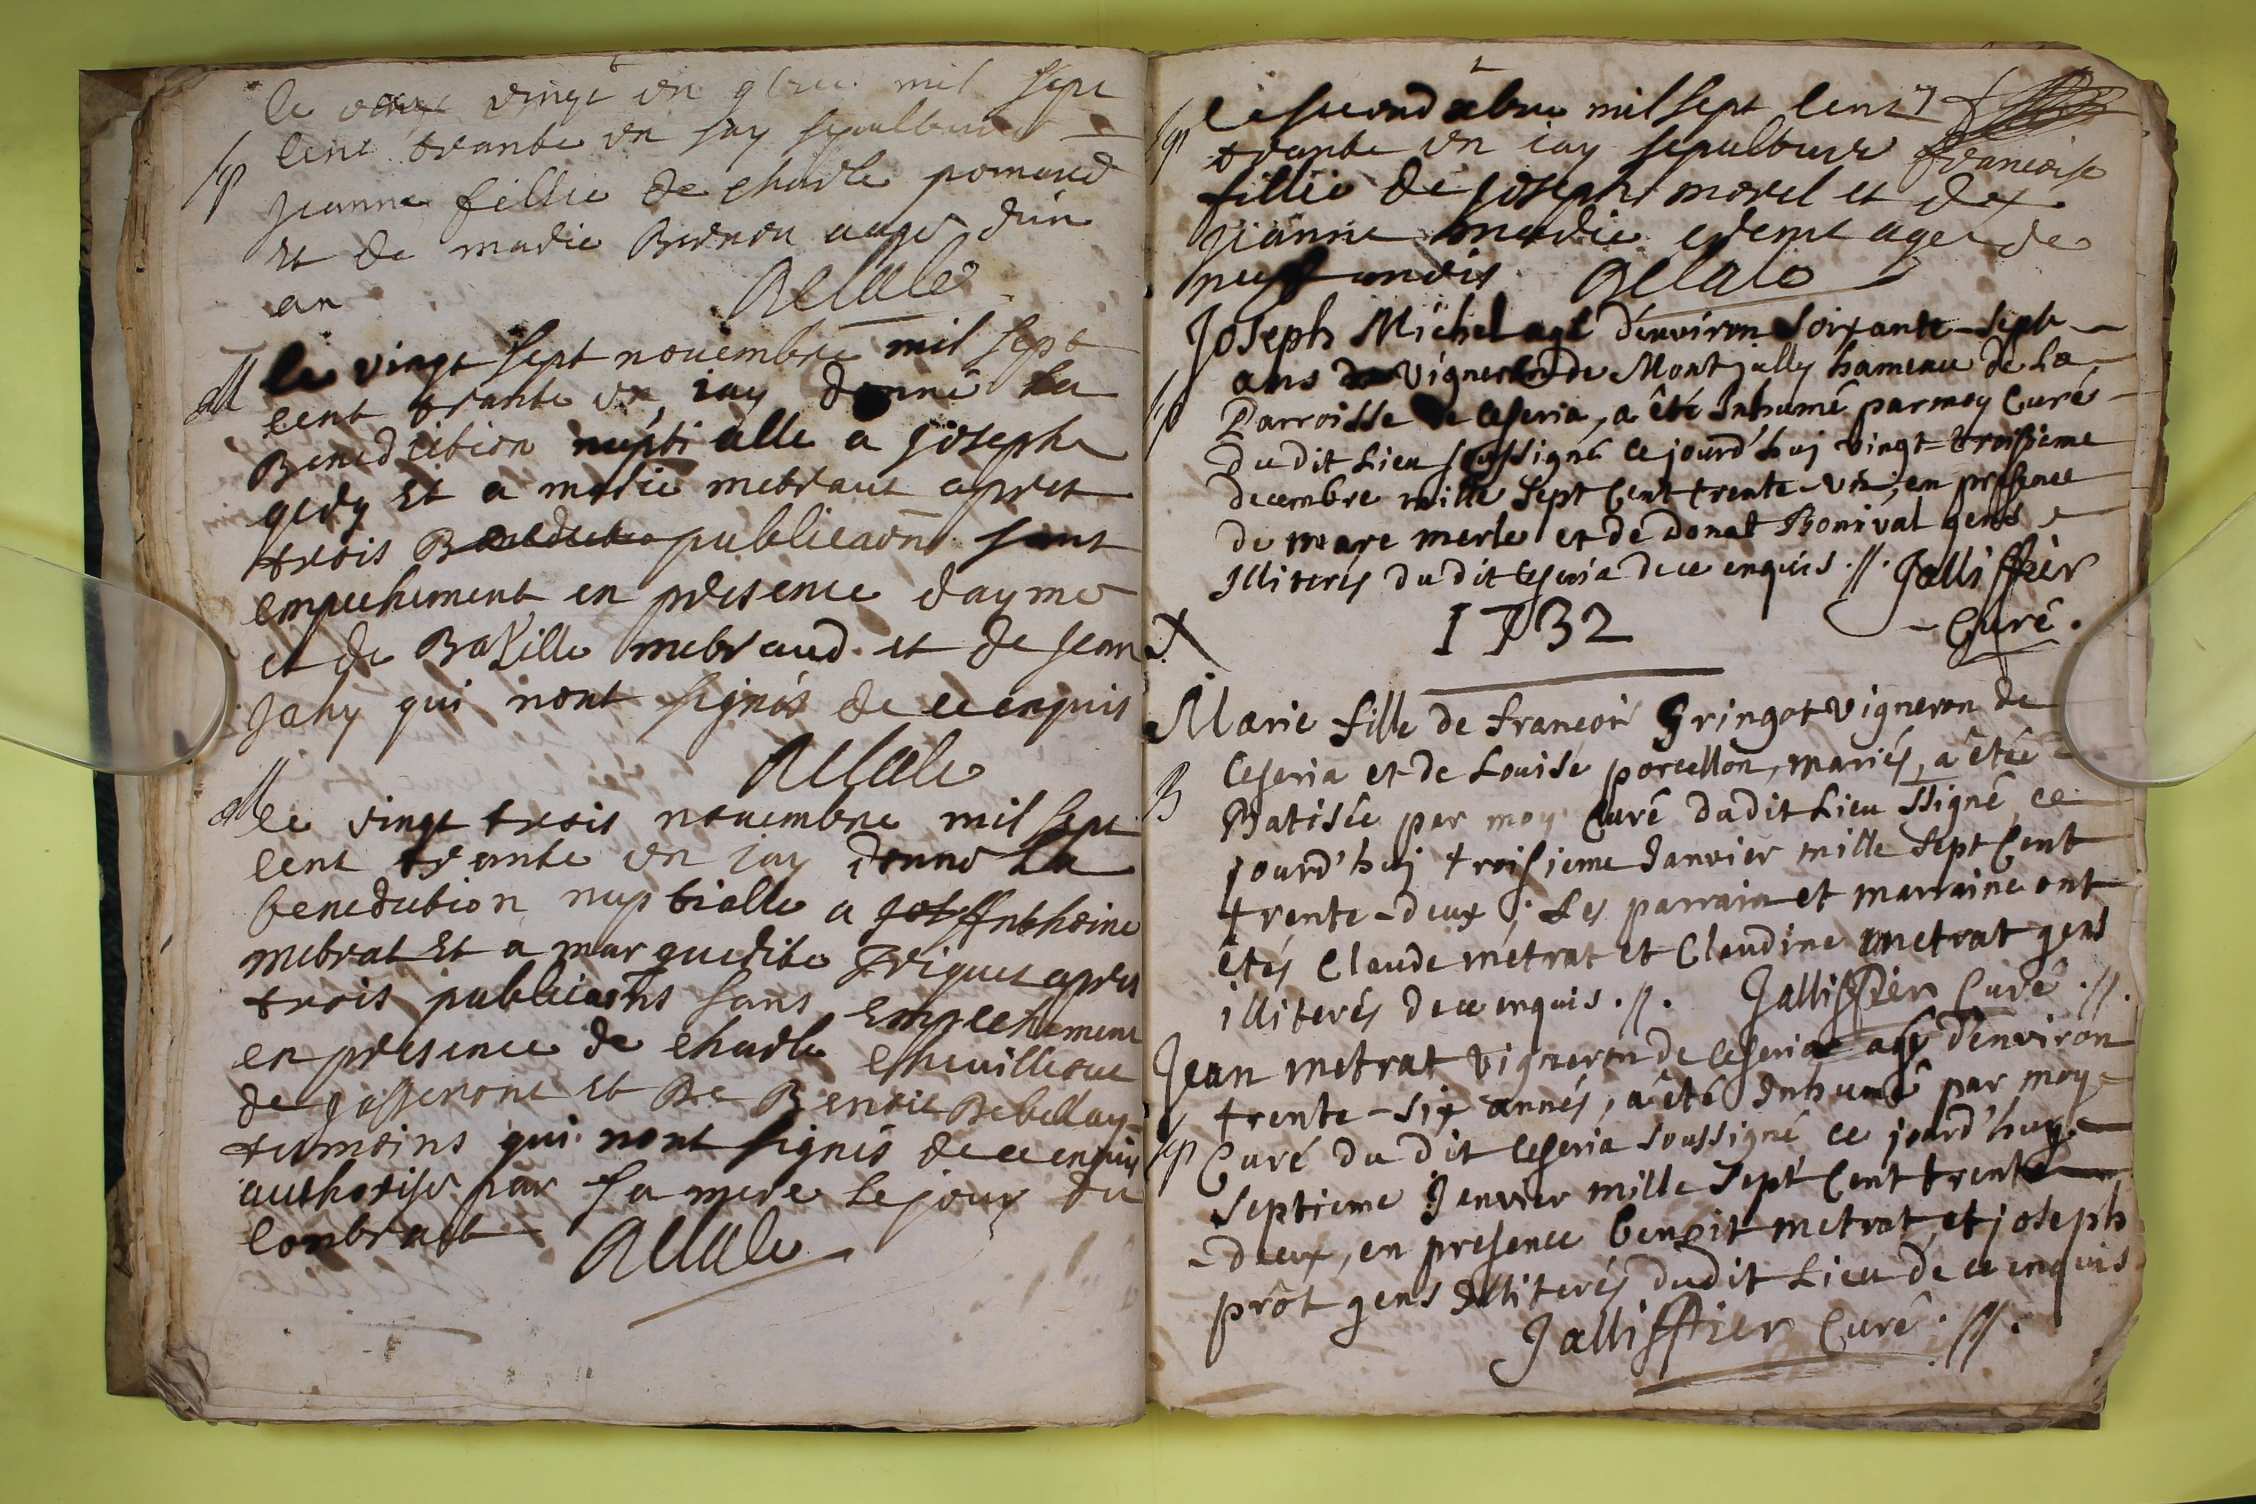 le vingt un 9bre mil sept
Sep cent trante un jay sepulture
jeanne fillie de charle pomered
et de marie Bernou aagé dun
an Relale
M le vingt sept nouembre mil sept
cent trante un jay donné la
Benediction nuptialle a joseph
gery Et a marie metraut apret
trois Benediction publicaon sant
empechement en presence daymé
et de Bazille metraud et de jean
jahy qui nont signés de ce enquis
Relale
M le vingt trois nouembre mil sept
cent trante un jay donné La
benediction nuptialle a Anthoine
metrat Et a marguerite apres
trois publicaons sans Empechement
en presence de charle cheuilleout
de gisseront Et De Benoit Debellay
temoins qui nont signés de ce enquis
authorisé par sa mere le jour du
contract Relale
le second xbre mil sept cent
Sep trante un jay sepulture francoise
fillie de joseph morel et de
jeanne marie agee de
neuf Relale
Joseph Michel agé d'environ soixante-sept
ans vigneron de Montjully hameau de la
Sep Parroisse de Ceseria, a êté Inhumé par moy Curés
du dit Lieu soussigné ce jourd'huj vingt-troisieme
decembre mille sept Cent trente-un, en presence
de marc merle et de Donat Bonival gens
Illiterés du dit Ceseria de ce enquis .//. Jalliffier
Curé.
1732
Marie fille de francois Gringot vigneron de
Ceseria et de Louise porcellon, mariés, a êtée
B Batisée par moy Curé dudit Lieu ssigné, ce
jourd'huj troisieme Janvier mille sept Cent
trente-deux; Les parrain et marraine ont
êtés Claude métrat et Claudine metrat gens
illiterés de ce enquis .//. Jalliffier Curé .//.
Jean metrat vigneron de Ceseria agé d'environ
trente-six annés, a êté Inhumé par moy
Sep Curé du dit Ceseria soussigné ce jourd'huy
septieme Janvier mille sept Cent trente
-deux, en presence benoit metrat et joseph
prôt gens Illiterés dudit Lieu de ce enquis
Jalliffier Curé .//.